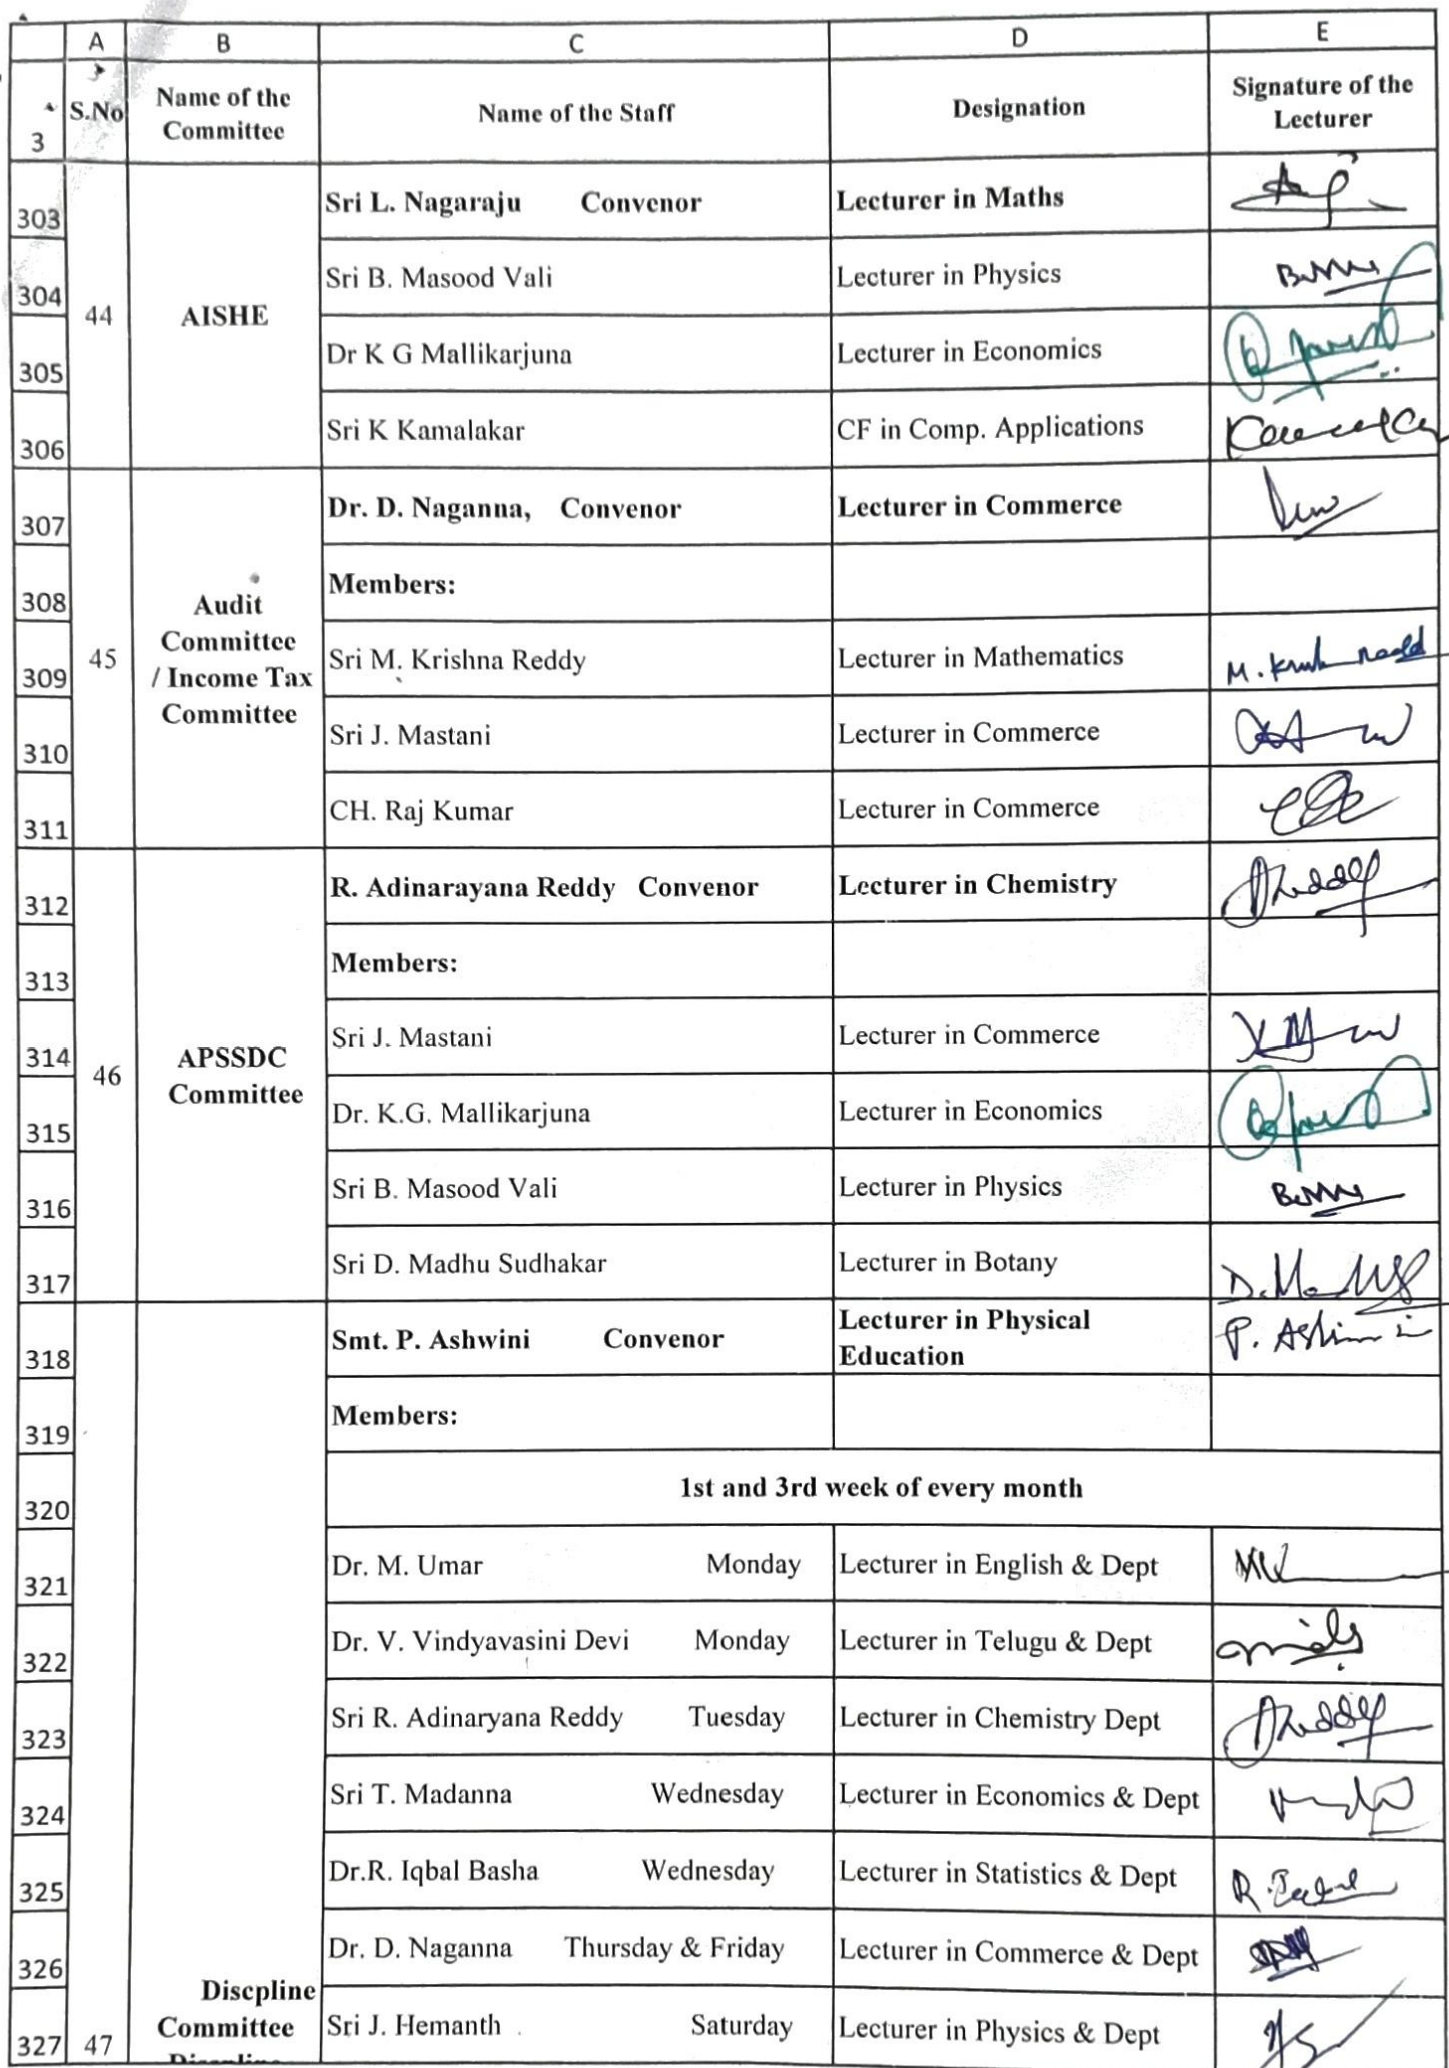 A B C D E
3 S.No Name of the Committee Name of the Staff Designation Signature of the Lecturer
303 Sri L. Nagaraju Convenor Lecturer in Maths
304 Sri B. Masood Vali Lecturer in Physics
44 AISHE
305 Dr K G Mallikarjuna Lecturer in Economics
306 Sri K Kamalakar CF in Comp. Applications
307 Dr. D. Naganna, Convenor Lecturer in Commerce
308 Members:
45 Audit Committee / Income Tax Committee
309 Sri M. Krishna Reddy Lecturer in Mathematics
310 Sri J. Mastani Lecturer in Commerce
311 CH. Raj Kumar Lecturer in Commerce
312 R. Adinarayana Reddy Convenor Lecturer in Chemistry
313 Members:
314 Sri J. Mastani Lecturer in Commerce
46 APSSDC Committee
315 Dr. K.G. Mallikarjuna Lecturer in Economics
316 Sri B. Masood Vali Lecturer in Physics
317 Sri D. Madhu Sudhakar Lecturer in Botany
318 Smt. P. Ashwini Convenor Lecturer in Physical Education
319 Members:
320 1st and 3rd week of every month
321 Dr. M. Umar Monday Lecturer in English & Dept
322 Dr. V. Vindyavasini Devi Monday Lecturer in Telugu & Dept
323 Sri R. Adinaryana Reddy Tuesday Lecturer in Chemistry Dept
324 Sri T. Madanna Wednesday Lecturer in Economics & Dept
325 Dr.R. Iqbal Basha Wednesday Lecturer in Statistics & Dept
326 Dr. D. Naganna Thursday & Friday Lecturer in Commerce & Dept
327 47 Discpline Committee Sri J. Hemanth Saturday Lecturer in Physics & Dept